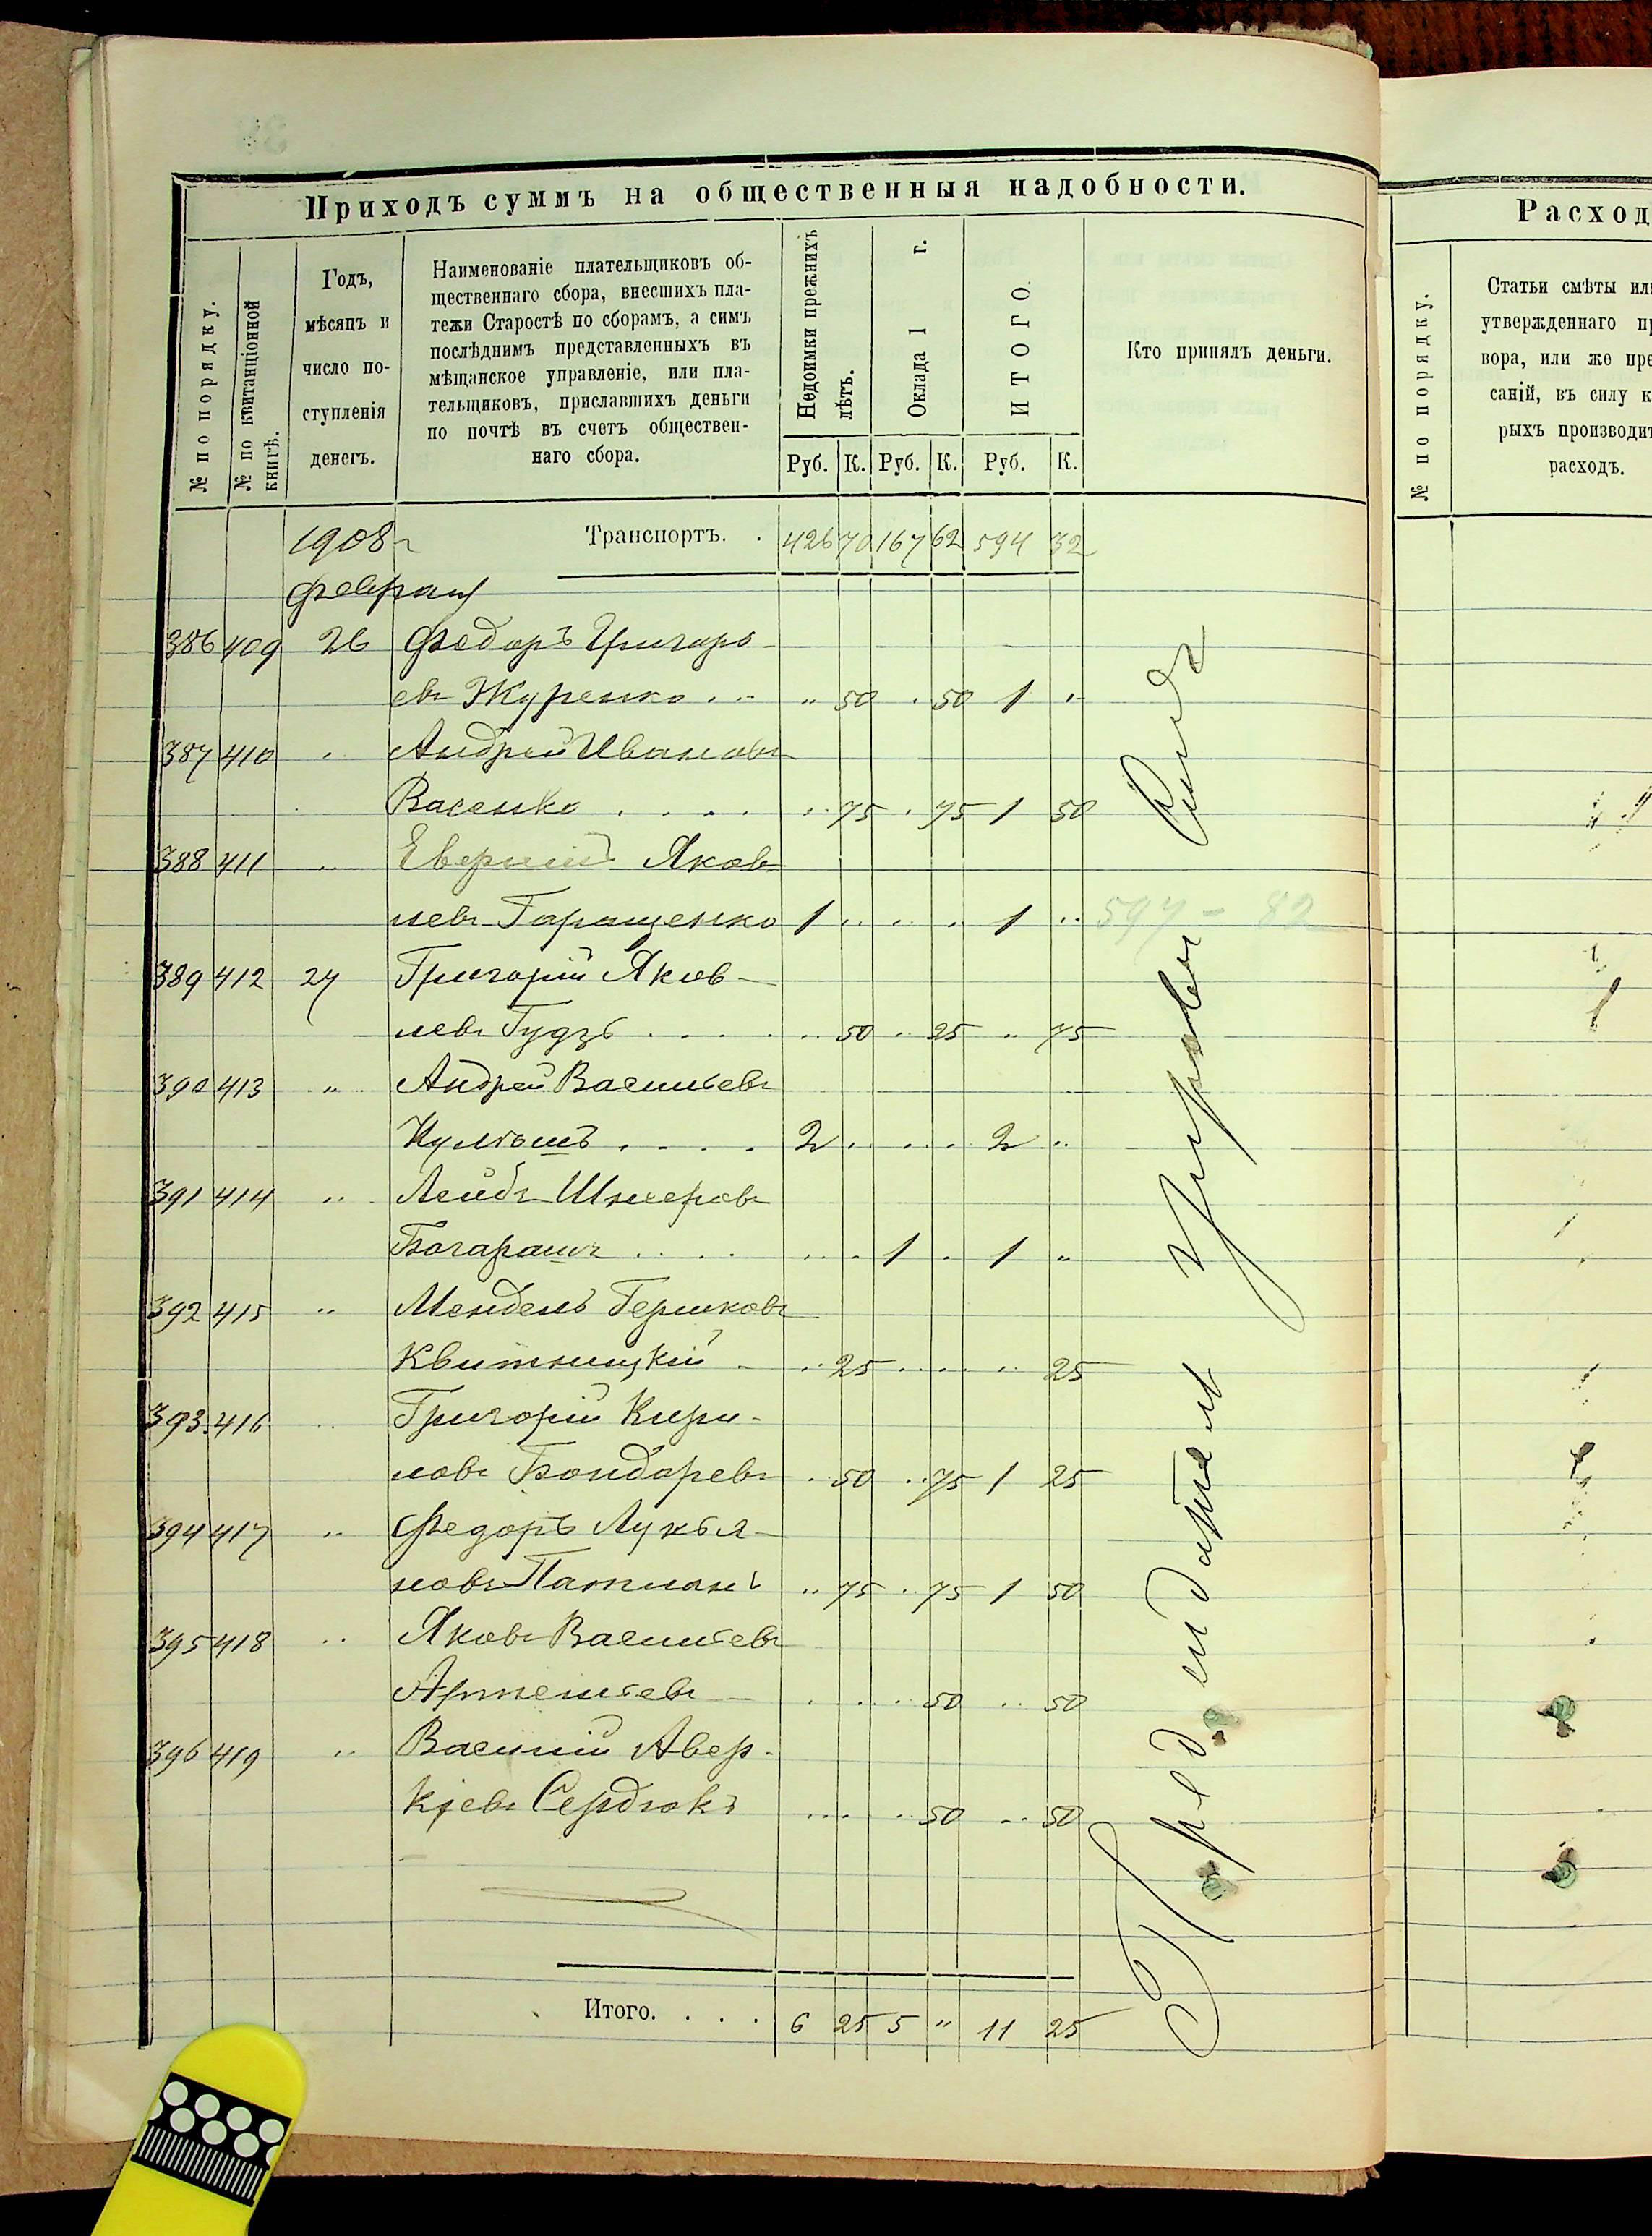 Приходъ суммъ на общественныя надобности.
№ по порядку.
№ по квитанціонной книгѣ.
Годъ,
мѣсяцъ и
число по-
ступленія
денегъ.
Наименованіе плательщиковъ об-
щественнаго сбора, внесшихъ пла-
тежи Старостѣ по сборамъ, а симъ
послѣднимъ представленныхъ въ
мѣщанское управленіе, или пла-
тельщиковъ, приславшихъ деньги
по почтѣ въ счетъ обществен-
наго сбора.
Недоимки прежнихъ лѣтъ.
Оклада 1 г.
ИТОГО.
Кто принялъ деньги.
Руб. К. Руб. К. Руб. К.
1908 г Транспортъ. . 426 70 167 62 594 32
февраля
386 409 26 Федоръ Григорь-
евъ Журенко . . " 50 . 50 1 "
387 410 " Андрей Ивановъ
Васенко . . . . " 75 . 75 1 50
388 411 " Яков
левъ Гаращенко 1 " " " 1 "
597 - 82
389 412 27 Григорій Яков-
левъ Гудзь . . . . " 50 " 25 " 75
390 413 " Андрей Васильевъ
Кулешъ . . . . 2 " " " 2 "
391 414 " Лейбъ Шмеровъ
. . . . " " 1 . 1 "
392 415 " Мендель Гершковъ
Квитницкій - " 25 " " " 25
393 416 " Григорій Кири-
ловъ Бондаревъ " 50 " 75 1 25
394 417 " Федоръ Лукья-
новъ " 75 " 75 1 50
395 418 " Яковъ Васильевъ
Артемьевъ - " " " 50 " 50
396 419 " Василій Авер-
кіевъ Сердюкъ " " " 50 " 50
Итого. . . . 6 25 5 " 11 25
Предсидатель
Расход
№ по порядку.
Статьи смѣты ил
утвержденнаго пр
вора, или же пре
саній, въ силу к
рыхъ производит
расходъ.